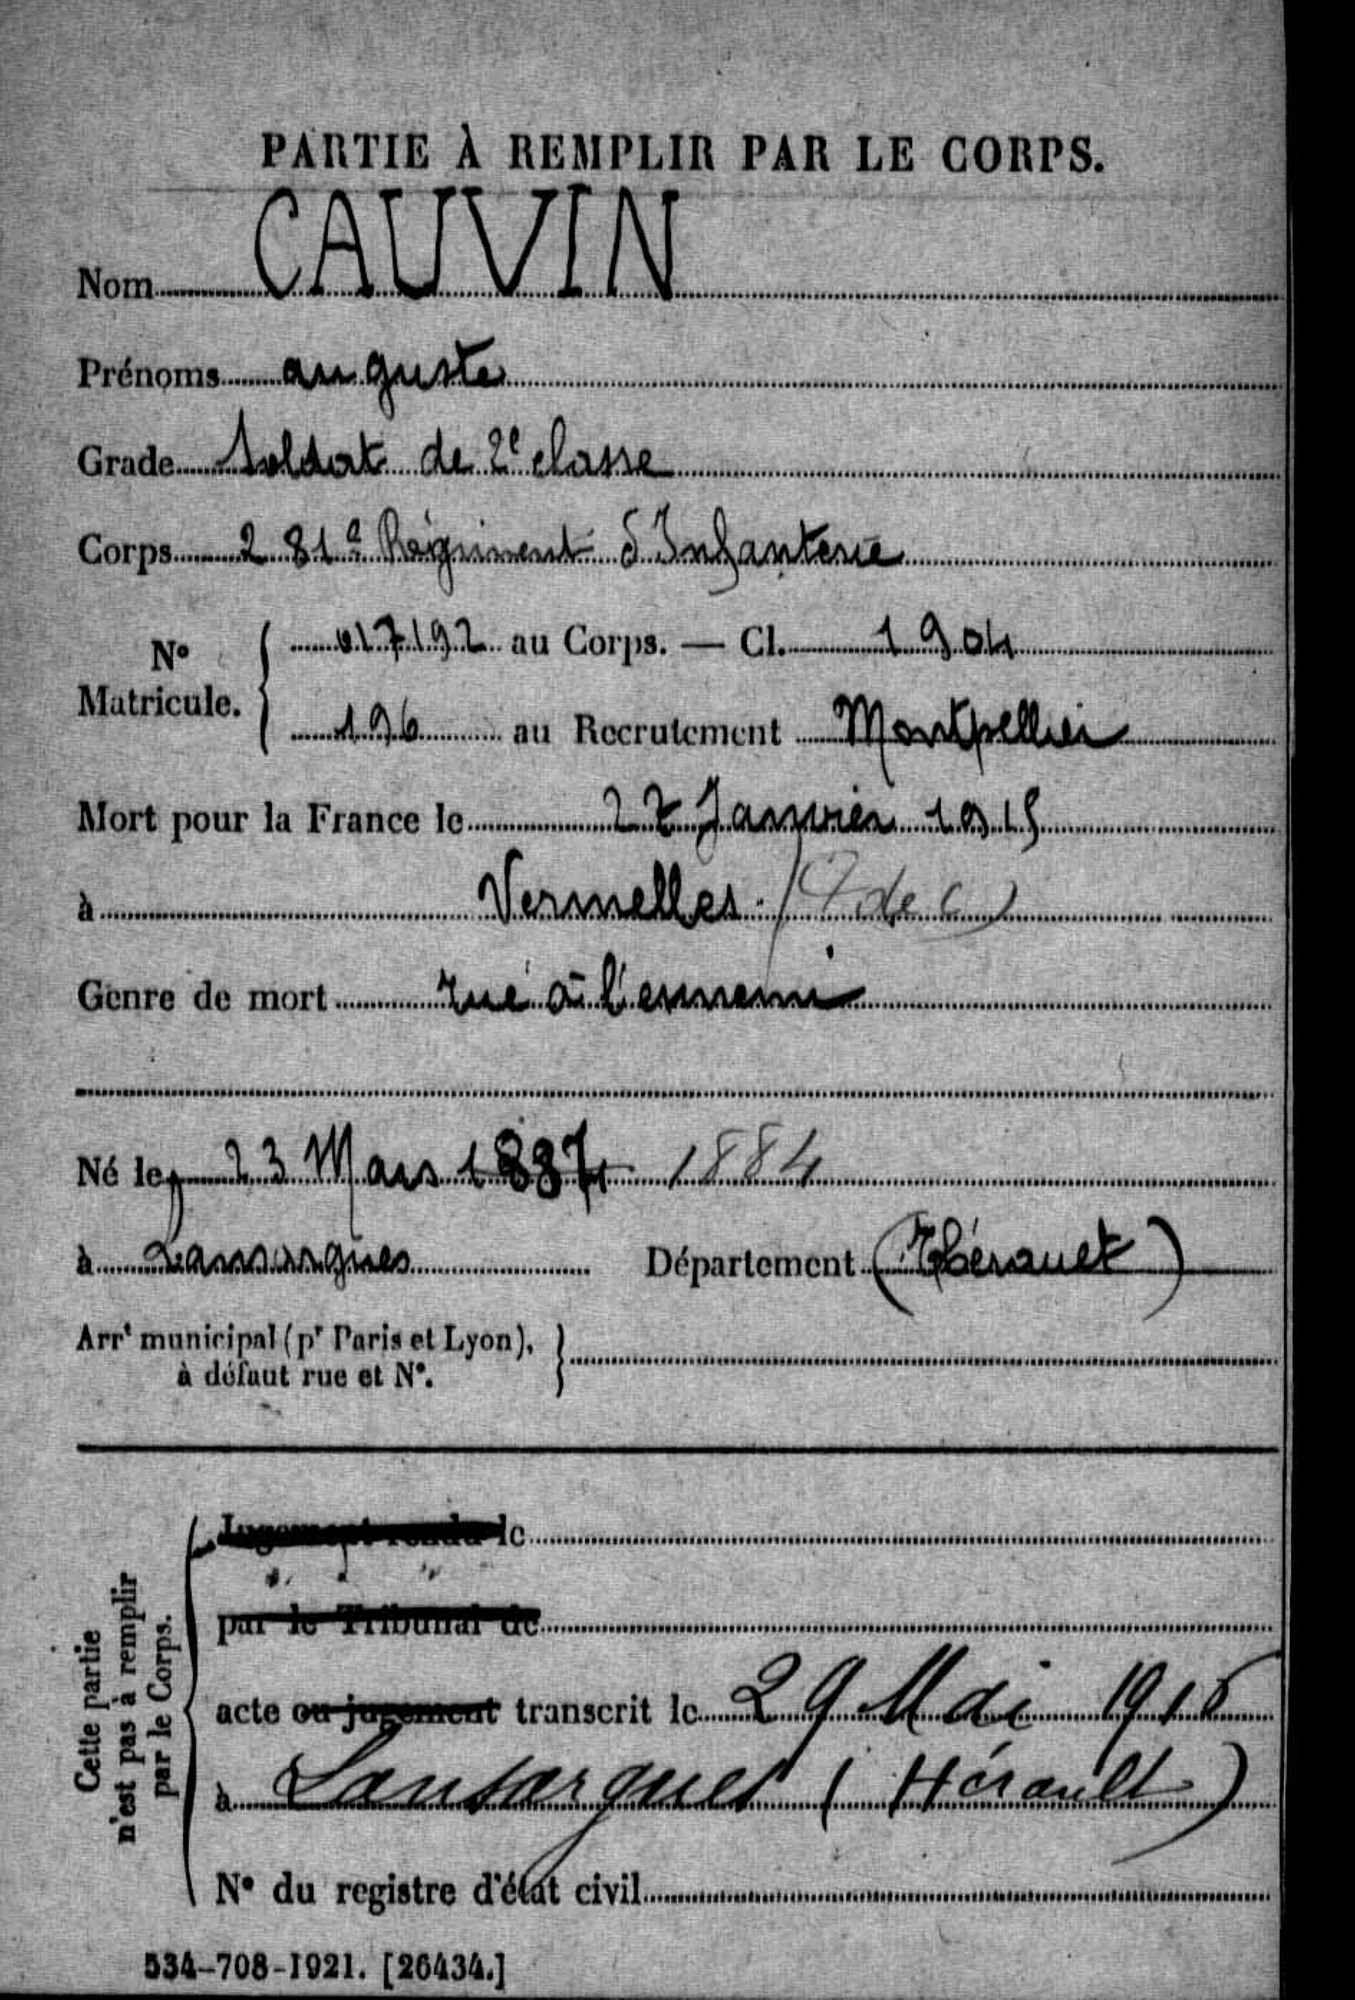 PARTIE À REMPLIR PAR LE CORPS.
Nom CAUVIN
Prénoms auguste
Grade Soldat de 2e classe
Corps 281e Régiment d'Infanterie
N° Matricule. 017192 au Corps. — Cl. 1904
196 au Recrutement Montpellier
Mort pour la France le 27 Janvier 1915
à Vermelles (P de C)
Genre de mort tué à l'ennemi
Né le 23 Mars 1884
à Lansargues Département (Hérault)
Arrt municipal (pr Paris et Lyon),
à défaut rue et N°.
Cette partie
n'est pas à remplir
par le Corps.
Jugement rendu le
par le Tribunal de
acte ou jugement transcrit le 29 Mai 1916
à Lansargues (Hérault)
N° du registre d'état civil
534-708-1921. [26434.]